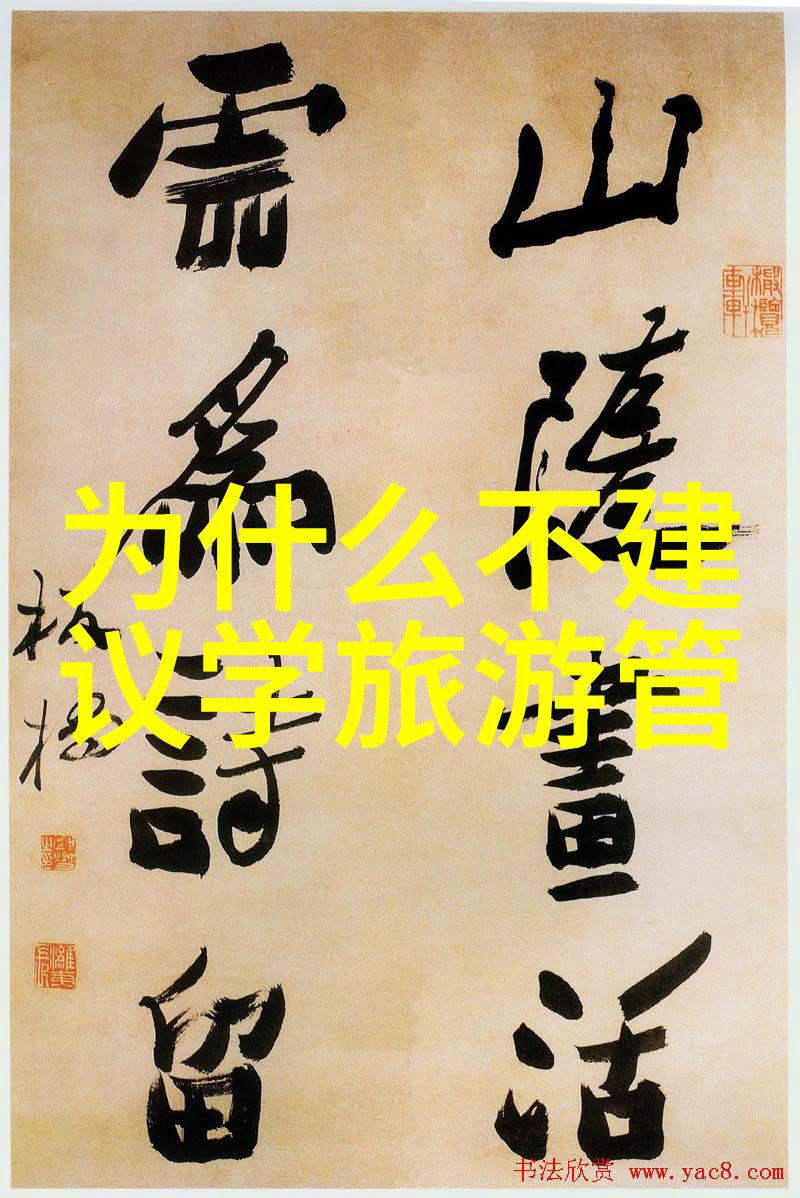 山隨畫活
雲為詩留
板橋
为什么不建
议学旅游管
书法欣赏 www.yac8.com